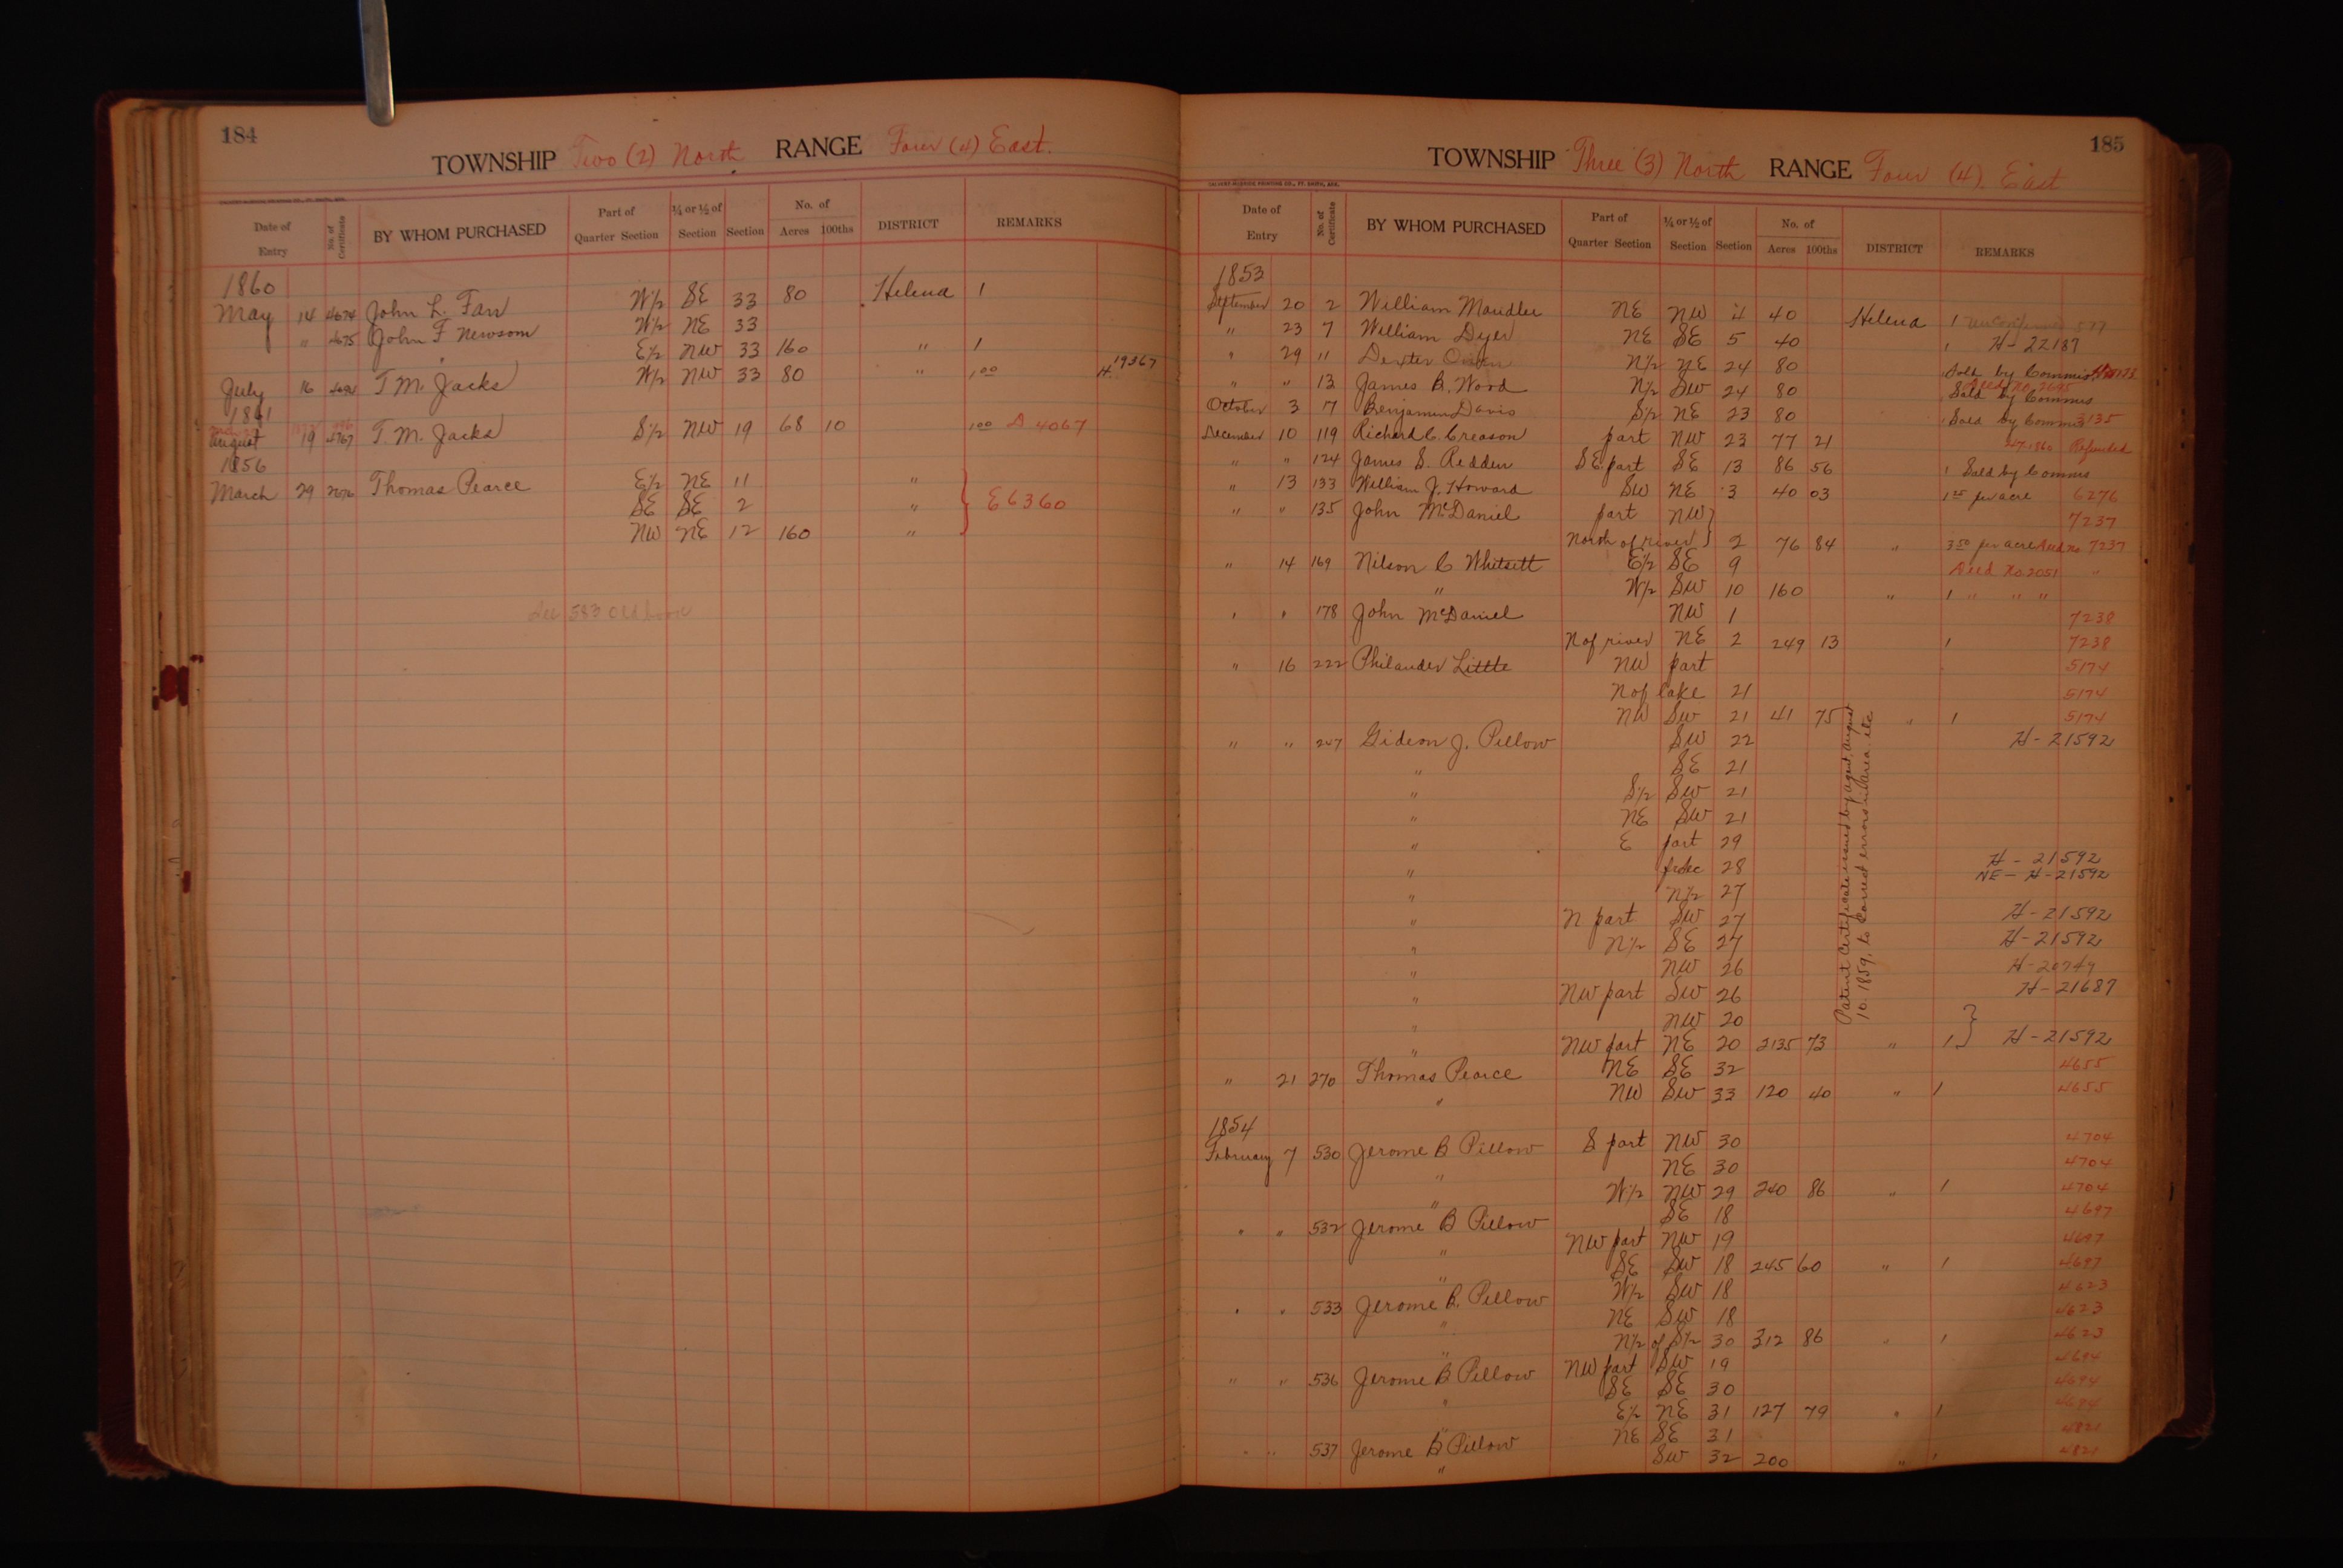 184
TOWNSHIP Two (2) North RANGE Four (4) East.
Date of Entry No. of Certificate BY WHOM PURCHASED Part of Quarter Section ¼ or ½ of Section Section No. of Acres 100ths DISTRICT REMARKS
1860
May 14 4674 John L. Farr W½ SE 33 80 Helena 1
" 4675 John F Newsom W½ NE 33
E½ NW 33 160 " 1
July 16 T. M. Jacks W½ NW 33 80 " 1.00 H. 19367
1861
August 19 4767 T. M. Jacks S½ NW 19 68 10 1.00 D 4067
1856
March 29 2676 Thomas Pearce E½ NE 11 "
SE SE 2 " E 6360
NW NE 12 160 "
See 583 Old book
185
TOWNSHIP Three (3) North RANGE Four (4). East
CALVERT-McBRIDE PRINTING CO., FT. SMITH, ARK.
Date of Entry No. of Certificate BY WHOM PURCHASED Part of Quarter Section ¼ or ½ of Section Section No. of Acres 100ths DISTRICT REMARKS
1853
September 20 2 William Maudlin NE NW 4 40 Helena 1
" 23 7 William Dyer NE SE 5 40 1 H-22187
" 29 11 Dexter N½ NE 24 80 Sold by Commis
Deed No. 2695
" " 13 James B. Wood N½ SW 24 80 Sold by Commis
October 3 7 Benjamin Davis S½ NE 23 80 Sold by Commis 3135
December 10 119 Richard C. Creason part NW 23 77 21 Refunded
" " 124 James S. Redden SE part SE 13 86 56 1 Sold by Commis
" 13 133 William J. Howard SW NE 3 40 03 1 25 per acre 6276
" " 135 John McDaniel part NW 7237
North of river 2 76 84 " 3 50 per acre Deed no 7237
" 14 169 Nilson C Whitsett E½ SE 9 Deed No. 2051 "
" W½ SW 10 160 " 1 " " "
" " 178 John McDaniel NW 1 7238
N of river NE 2 249 13 1 7238
" 16 222 Philander Little NW part 5174
N of lake 21 5174
NW SW 21 41 75 " 1 5174
" " 247 Gideon J. Pillow SW 22 H-21592
" SE 21
" S½ SW 21
" NE SW 21
" E part 29
" frac 28 H-21592
NE-H-21592
" N½ 27
" N. part SW 27 H-21592
" N½ SE 27 H-21592
" NW 26 H-20749
" NW part SW 26 H-21687
" NW 20
" NW part NE 20 2135 73 " 1 H-21592
Patent Certificate issued by agent, August
10. 1859, to correct errors in area. etc
" 21 270 Thomas Pearce NE SE 32 4655
" NW SW 33 120 40 " 1 4655
1854
February 7 530 Jerome B Pillow S part NW 30 4704
" NE 30 4704
" W½ NW 29 240 86 " 1 4704
" " 532 Jerome B Pillow SE 18 4697
" NW part NW 19 4697
" SE SW 18 245 60 " 1 4697
" " 533 Jerome B. Pillow W½ SW 18 4623
" NE SW 18 4623
" N½ of S½ 30 312 86 " 1 4623
" " 536 Jerome B Pillow NW part SW 19 4694
" SE SE 30 4694
" E½ NE 31 127 79 " 1 4694
" " 537 Jerome B Pillow NE SE 31 4821
" SW 32 200 " 1 4821